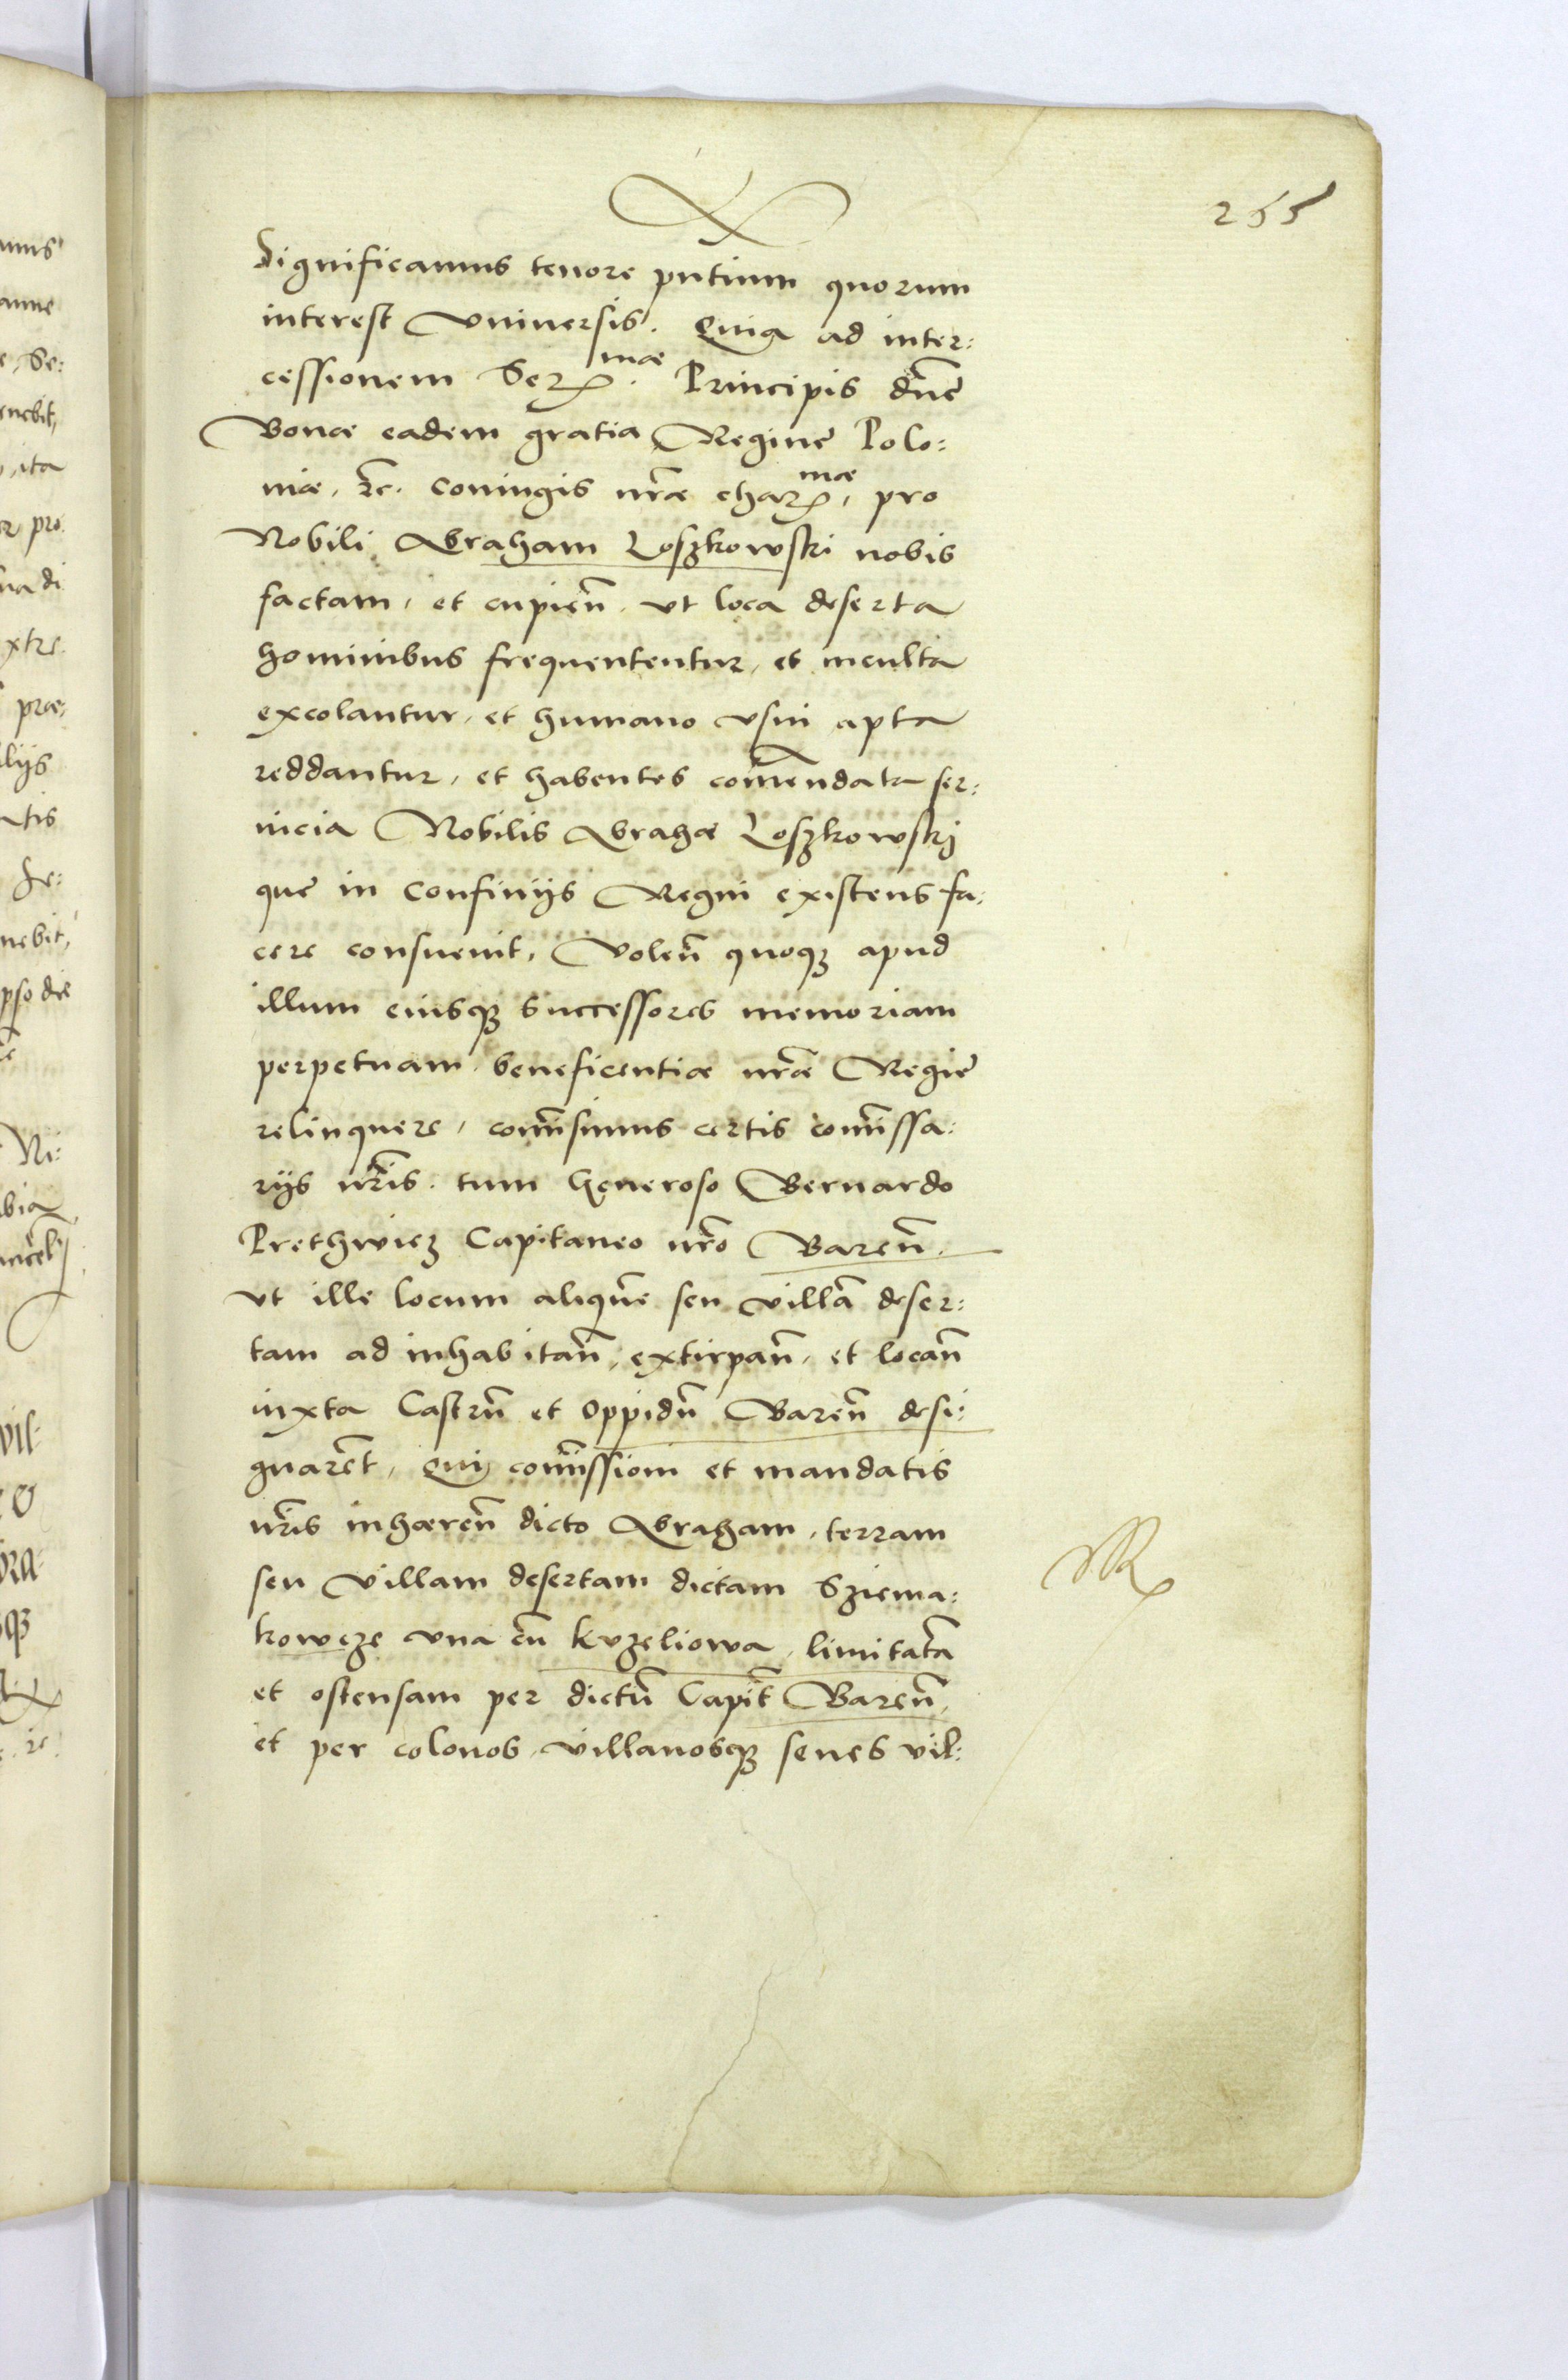 255
Significamus tenore pñtium quorum
interest Vniuersis. Quia ad inter:
cessionem Ser.mae Principis dñe
Bonæ eadem gratia Regine Polo:
niæ, etc. Coniugis nr̃æ char.mae, pro
Nobili Abraham Loszkowski nobis
factam, et cupieñ. vt loca deserta
hominibus frequententur, et inculta
excolantur, et humano vsui apta
reddantur, et habentes com̃endata ser:
uicia Nobilis Abrahæ Loszkowskj
que in confinijs Regni existens fa:
cere consueuit, Voleñ quoqȝ apud
illum eiusqȝ successores memoriam
perpetuam beneficentiæ nr̃æ Regie
relinquere, com̃isimus certis com̃issa:
rijs nr̃is. tum Generoso Bernardo
Prethwicz Capitaneo nr̃o Bareñ.
vt ille locum aliquẽ seu villã deser:
tam ad inhabitañ, extirpañ, et locañ
iuxta Castrũ et Oppidũ Bareñ desi:
gnarẽt, Qui com̃issioni et mandatis
nr̃is inhæreñ dicto Abraham, terram
seu Villam desertam dictam Sziema:
kowcze vna cũ kvzeliowa, limitatã
et ostensam per dictũ Capit̃ Bareñ,
et per colonos villanosqȝ senes vil: